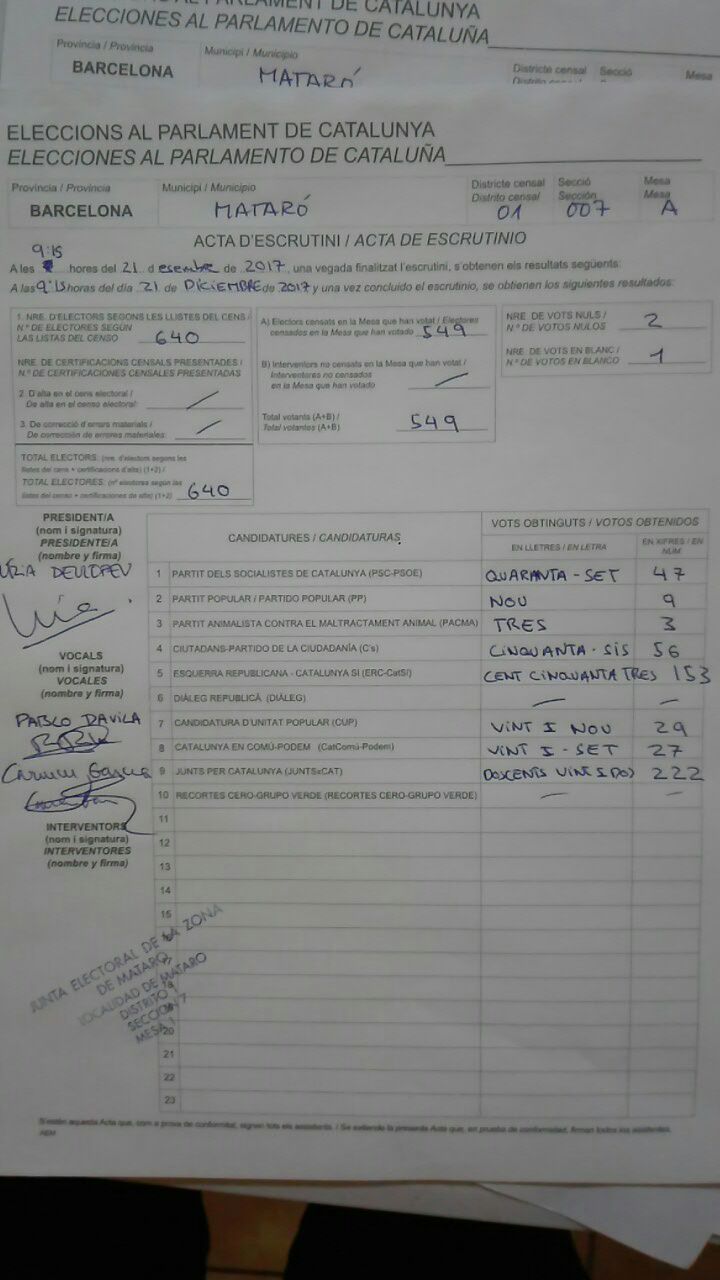 AL PARLAMENT DE CATALUNYA
ELECCIONES AL PARLAMENTO DE CATALUÑA
Província / Provincia
Municipi / Municipio
Districte censal
Secció
Mesa
BARCELONA
MATARÓ
Distrito censal
ELECCIONS AL PARLAMENT DE CATALUNYA
ELECCIONES AL PARLAMENTO DE CATALUÑA
Província / Provincia
Municipi / Municipio
Districte censal Secció Mesa
Distrito censal Sección Mesa
BARCELONA MATARÓ 01 007 A
ACTA D'ESCRUTINI / ACTA DE ESCRUTINIO
9:15
A les hores del 21 d esembre de 2017, una vegada finalitzat l'escrutini, s'obtenen els resultats següents:
A las 9:15 horas del día 21 de DICIEMBRE de 2017 y una vez concluido el escrutinio, se obtienen los siguientes resultados:
1. NRE. D'ELECTORS SEGONS LES LLISTES DEL CENS /
N.º DE ELECTORES SEGÚN
LAS LISTAS DEL CENSO 640
NRE. DE CERTIFICACIONS CENSALS PRESENTADES /
N.º DE CERTIFICACIONES CENSALES PRESENTADAS
2. D'alta en el cens electoral /
De alta en el censo electoral: /
3. De correcció d'errors materials /
De corrección de errores materiales: /
TOTAL ELECTORS: (nre. d'electors segons les
llistes del cens + certificacions d'alta) (1+2) /
TOTAL ELECTORES: (nº electores según las
listas del censo + certificaciones de alta) (1+2) 640
A) Electors censats en la Mesa que han votat / Electores
censados en la Mesa que han votado 549
B) Interventors no censats en la Mesa que han votat /
Interventores no censados
en la Mesa que han votado /
Total votants (A+B) /
Total votantes (A+B) 549
NRE. DE VOTS NULS /
N.º DE VOTOS NULOS 2
NRE. DE VOTS EN BLANC /
N.º DE VOTOS EN BLANCO 1
PRESIDENT/A
(nom i signatura)
PRESIDENTE/A
(nombre y firma)
VOCALS
(nom i signatura)
VOCALES
(nombre y firma)
PABLO DAVILA
Carmen Garcia
INTERVENTORS
(nom i signatura)
INTERVENTORES
(nombre y firma)
CANDIDATURES / CANDIDATURAS
VOTS OBTINGUTS / VOTOS OBTENIDOS
EN LLETRES / EN LETRA
EN XIFRES / EN NÚM.
1 PARTIT DELS SOCIALISTES DE CATALUNYA (PSC-PSOE) QUARANTA-SET 47
2 PARTIT POPULAR / PARTIDO POPULAR (PP) NOU 9
3 PARTIT ANIMALISTA CONTRA EL MALTRACTAMENT ANIMAL (PACMA) TRES 3
4 CIUTADANS-PARTIDO DE LA CIUDADANÍA (C's) CINQUANTA-SIS 56
5 ESQUERRA REPUBLICANA - CATALUNYA SÍ (ERC-CatSí) CENT CINQUANTA TRES 153
6 DIÀLEG REPUBLICÀ (DIÀLEG) — —
7 CANDIDATURA D'UNITAT POPULAR (CUP) VINT I NOU 29
8 CATALUNYA EN COMÚ-PODEM (CatComú-Podem) VINT I-SET 27
9 JUNTS PER CATALUNYA (JUNTSxCAT) DOSCENTS VINT I DOS 222
10 RECORTES CERO-GRUPO VERDE (RECORTES CERO-GRUPO VERDE) — —
11
12
13
14
15
20
21
22
23
JUNTA ELECTORAL DE LA ZONA
DE MATARO
LOCALIDAD DE MATARO
DISTRITO 1
SECCION 7
MESA
S'estén aquesta Acta que, com a prova de conformitat, signen tots els assistents. / Se extiende la presente Acta que, en prueba de conformidad, firman todos los asistentes.